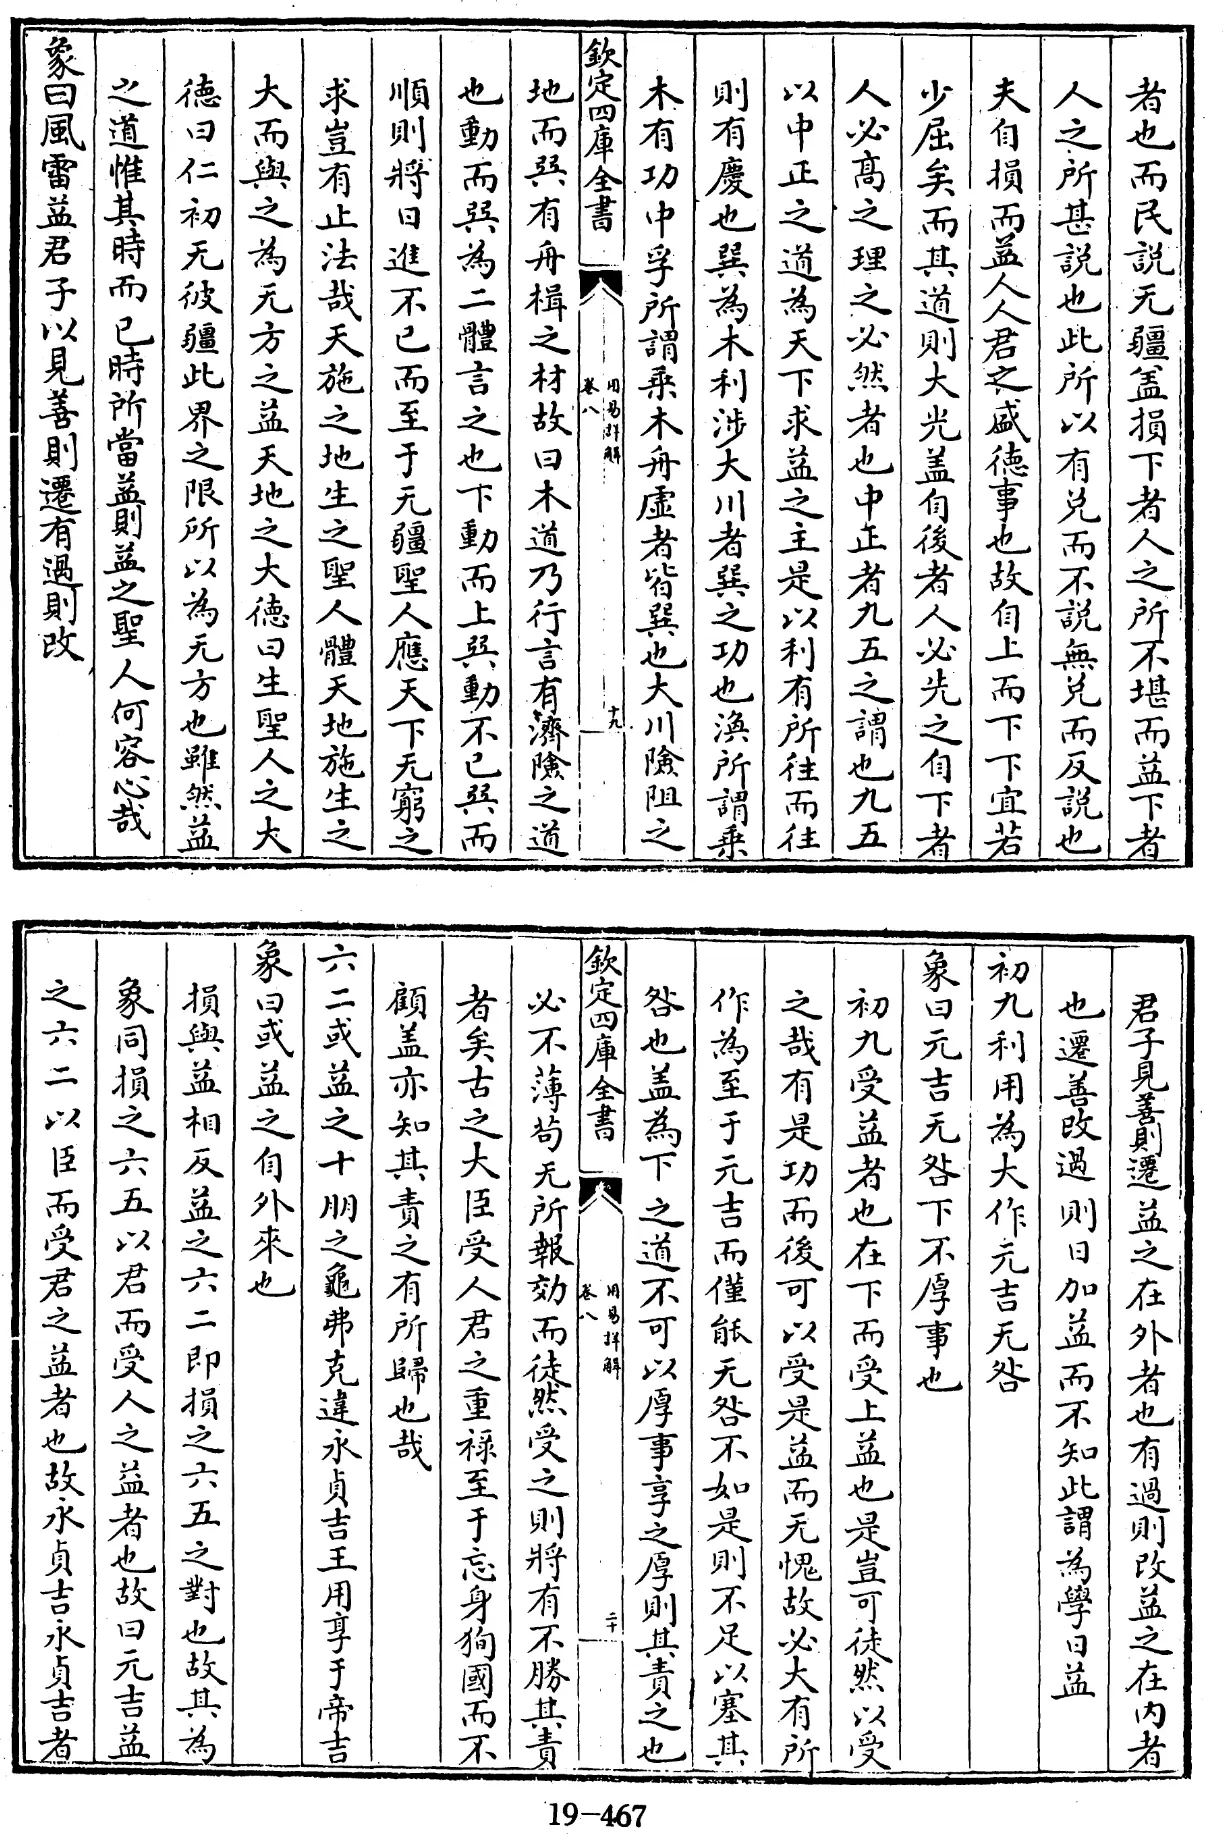 者也而民說无疆盖損下者人之所不堪而益下者
人之所甚說也此所以有兑而不說無兑而反說也
夫自損而益人人君之盛德事也故自上而下下宜若
少屈矣而其道則大光盖自後者人必先之自下者
人必髙之理之必然者也中正者九五之謂也九五
以中正之道為天下求益之主是以利有所往而往
則有慶也巽為木利涉大川者巽之功也渙所謂乗
木有功中孚所謂乗木舟虛者皆巽也大川險阻之
欽定四庫全書
用易詳解
卷八
十九
地而巽有舟楫之材故曰木道乃行言有濟險之道
也動而巽為二體言之也下動而上巽動不已巽而
順則將日進不已而至于无疆聖人應天下无窮之
求豈有止法哉天施之地生之聖人體天地施生之
大而與之為无方之益天地之大德曰生聖人之大
德曰仁初无彼疆此界之限所以為无方也雖然益
之道惟其時而已時所當益則益之聖人何容心哉
象曰風雷益君子以見善則遷有過則改
君子見善則遷益之在外者也有過則改益之在内者
也遷善改過則日加益而不知此謂為學日益
初九利用為大作元吉无咎
象曰元吉无咎下不厚事也
初九受益者也在下而受上益也是豈可徒然以受
之哉有是功而後可以受是益而无愧故必大有所
作為至于元吉而僅能无咎不如是則不足以塞其
咎也盖為下之道不可以厚事享之厚則其責之也
欽定四庫全書
用易詳解
卷八
二十
必不薄茍无所報効而徒然受之則將有不勝其責
者矣古之大臣受人君之重禄至于忘身狥國而不
顧盖亦知其責之有所歸也哉
六二或益之十朋之龜弗克違永貞吉王用享于帝吉
象曰或益之自外來也
損與益相反益之六二即損之六五之對也故其為
象同損之六五以君而受人之益者也故曰元吉益
之六二以臣而受君之益者也故永貞吉永貞吉者
19-467